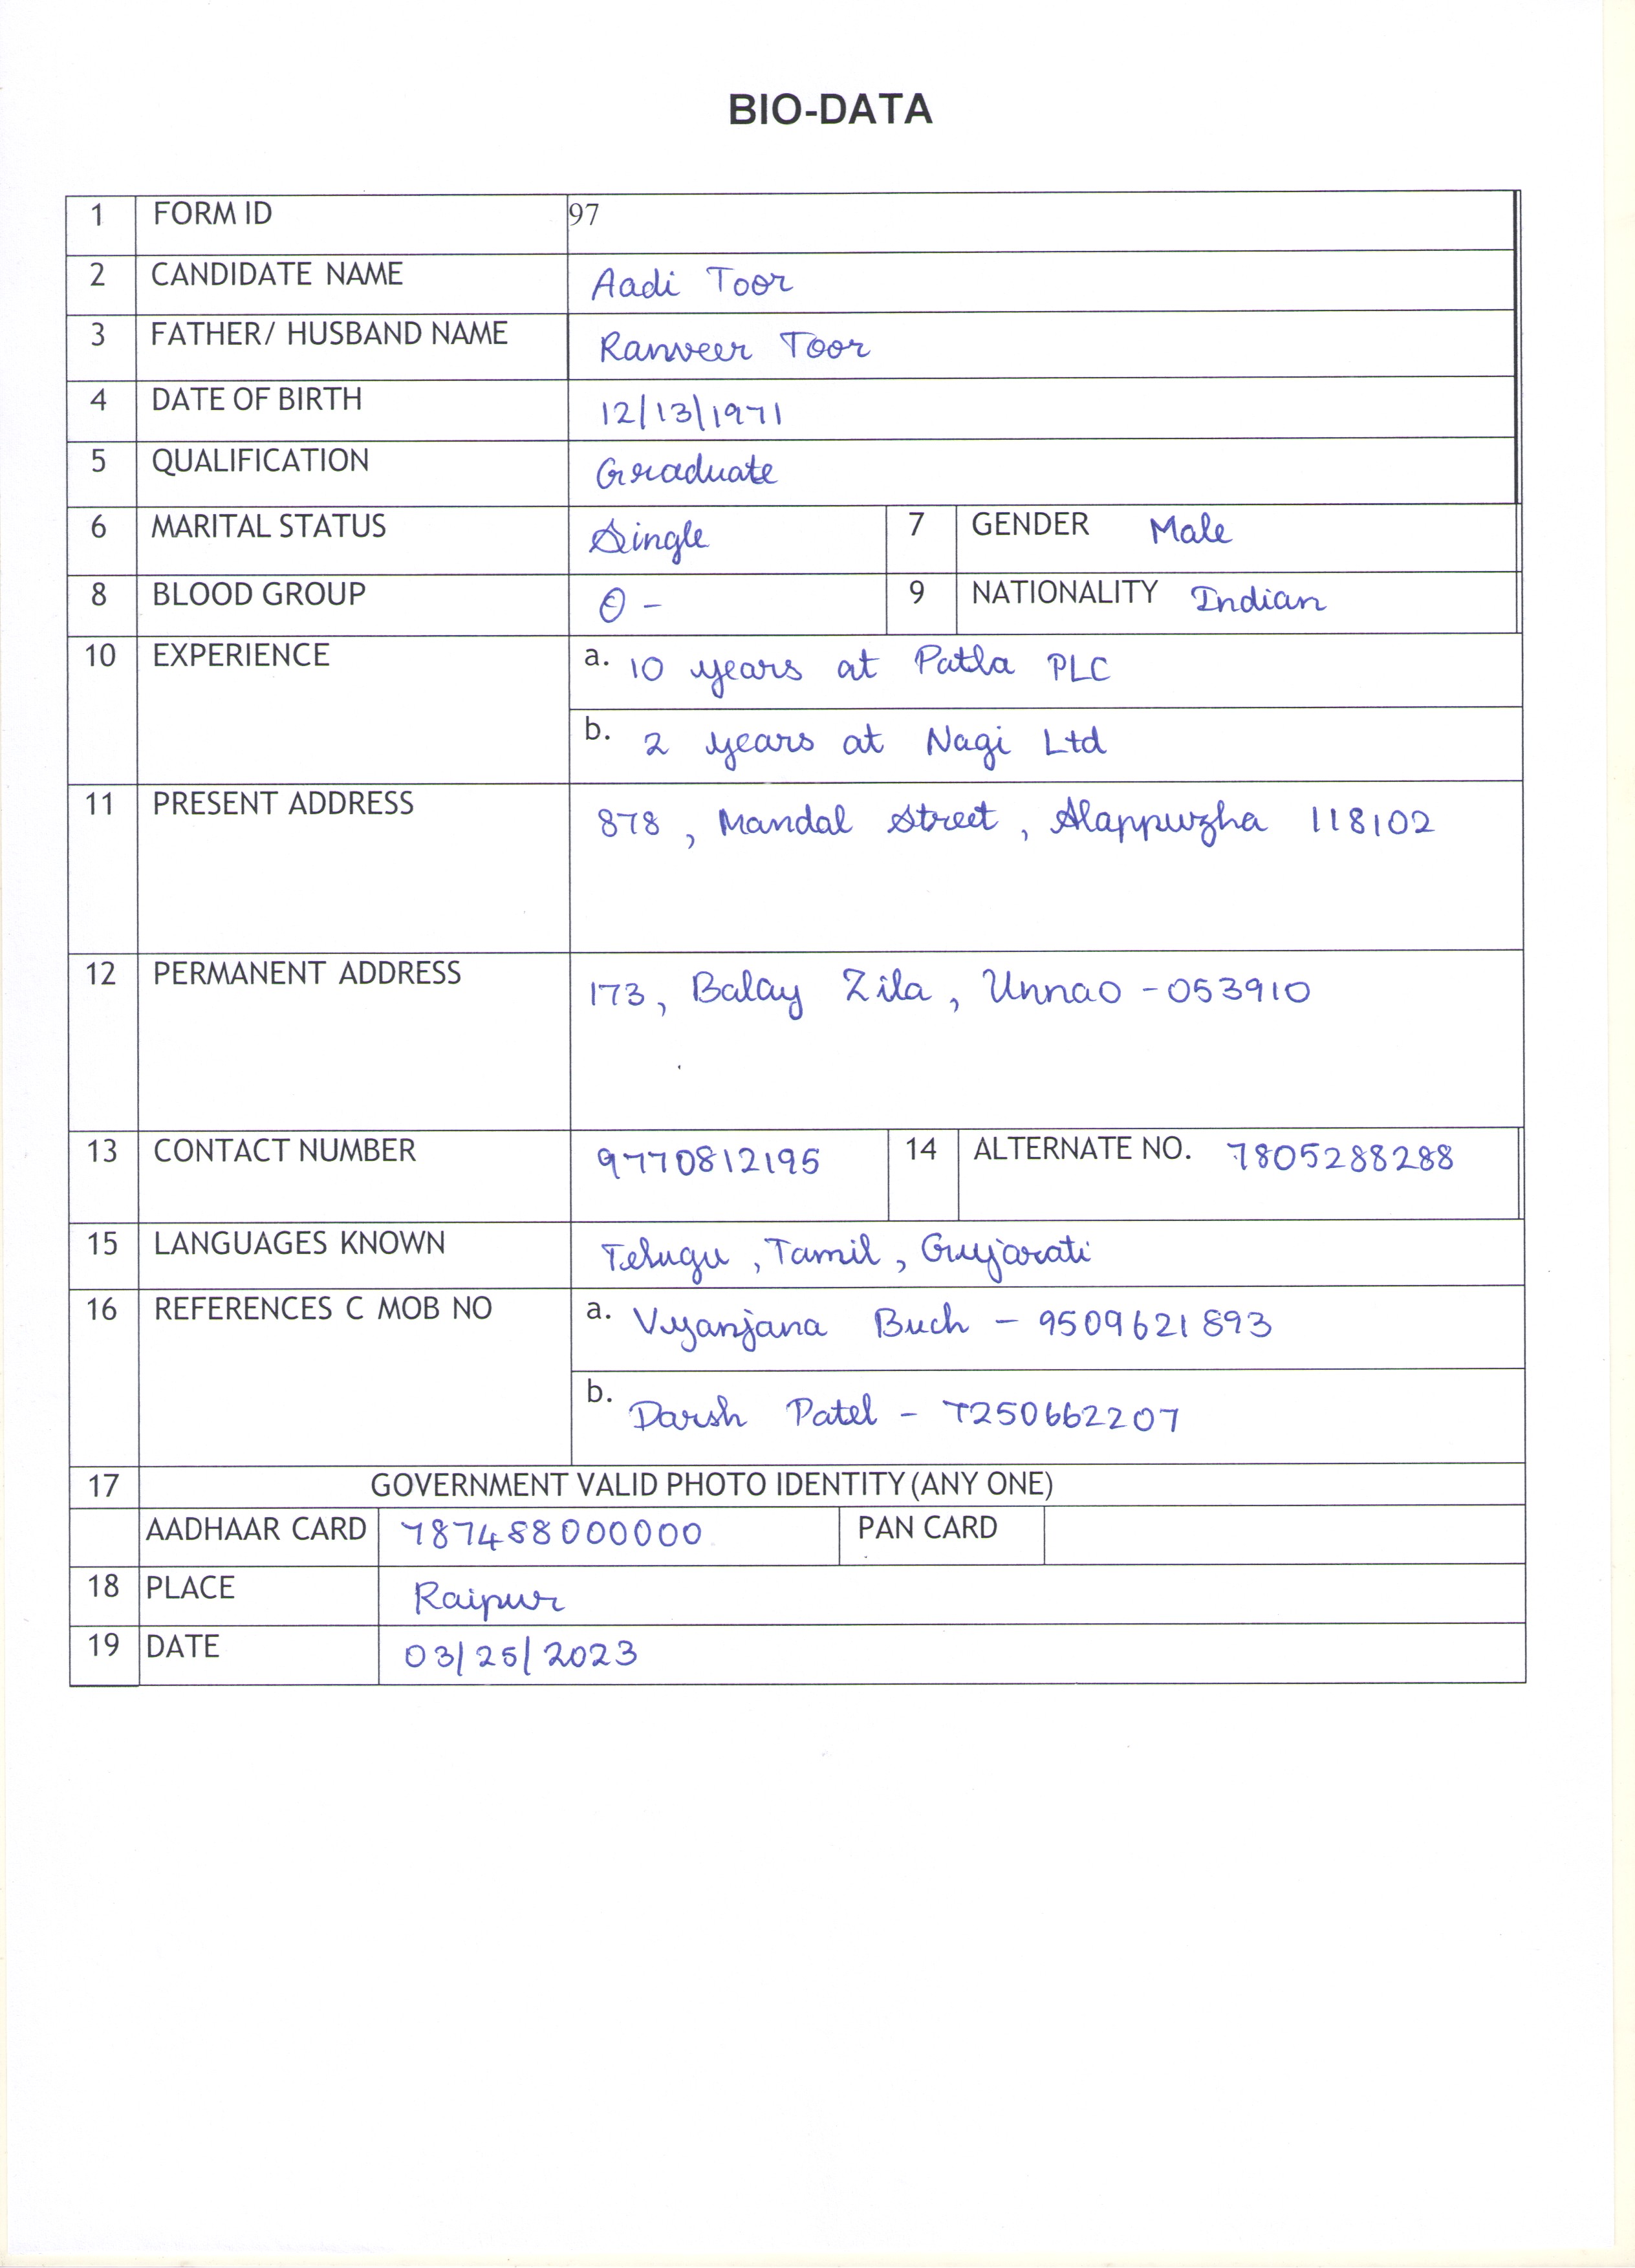 BIO-DATA
1 FORM ID 97
2 CANDIDATE NAME Aadi Toor
3 FATHER/ HUSBAND NAME Ranveer Toor
4 DATE OF BIRTH 12/13/1971
5 QUALIFICATION Graduate
6 MARITAL STATUS Single 7 GENDER Male
8 BLOOD GROUP O - 9 NATIONALITY Indian
10 EXPERIENCE a. 10 years at Patla PLC
b. 2 years at Nagi Ltd
11 PRESENT ADDRESS 878 , Mandal Street , Alappuzha 118102
12 PERMANENT ADDRESS 173, Balay Zila , Unnao - 053910
13 CONTACT NUMBER 9770812195 14 ALTERNATE NO. 7805288288
15 LANGUAGES KNOWN Telugu , Tamil , Gujarati
16 REFERENCES C MOB NO a. Vyanjana Buch - 9509621893
b. Darsh Patel - 7250662207
17 GOVERNMENT VALID PHOTO IDENTITY (ANY ONE)
AADHAAR CARD 787488000000 PAN CARD
18 PLACE Raipur
19 DATE 03/25/2023